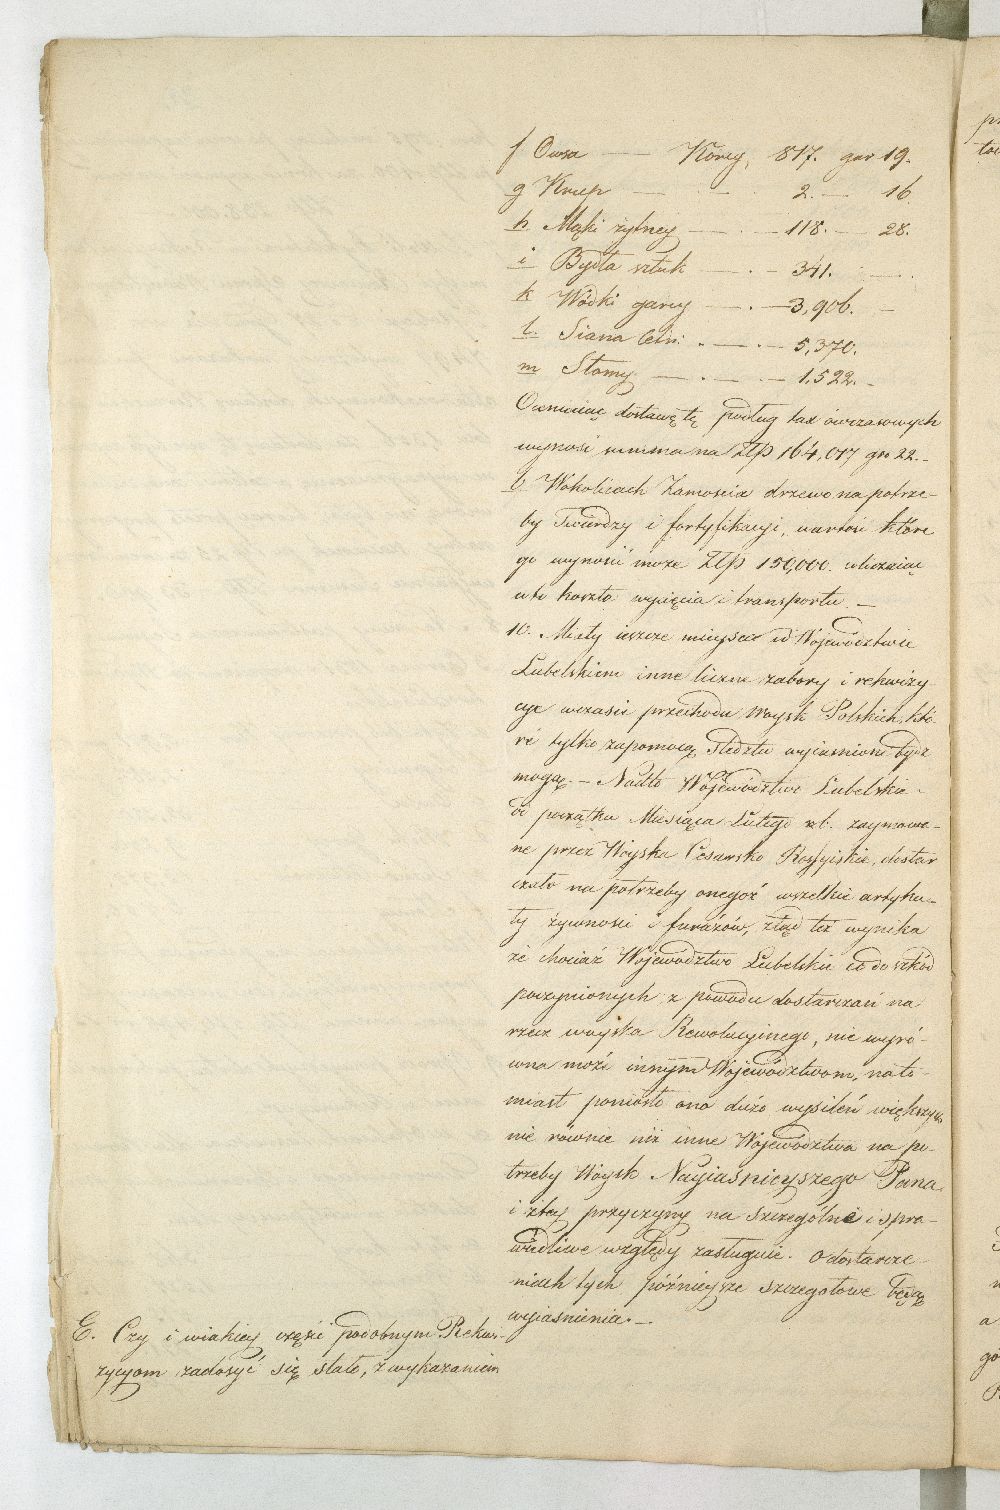 f Owsa — Korcy, 817. gar 19.
g Krup — — 2. — 16.
h. Mąki żytney — . — 118. — 28.
i Bydła sztuk — . — 341. —
k Wódki garcy — . — 3,906. —
l. Siana Cetn: . — . — 5,370.
m Słomy — . — . — 1,522. —
Oceniaiąc dostawę tę podług tax ówczasowych
wynosi summa na Złp 164,077 gr 22. —
b Wokolicach Zamościa drzewo na potrze-
by Twierdzy i fortyfikacyi, wartość które
go wynosić może Złp 150,000. wliczaiąc
w to koszta wycięcia i transportu. —
10. Miały ieszcze mieysce w Woiewództwie
Lubelskiem inne liczne zabory i rekwizy-
cye wczasie przechodu Woysk Polskich, któ-
re tylko zapomocą śledztw wyiaśnione bydź
mogą. — Nadto Wojewódzstwo Lubelskie
od początku Miesiąca Lutego r.b. zaymowa-
ne przez Woyska Cesarsko Rossyiskie, dostar
czało na potrzeby onegoż wszelkie artyku-
ły żywności i furażów, ztąd też wynika
że chociaż Wojewodztwo Lubelskie co do szkód
poczynionych z powodu dostarczań na
rzecz woyska Rewolucyinego, nie wyró-
wna może innym Wojewódzstwom, nato-
miast poniosło ono dużo wysileń większych
nie równie niż inne Wojewódzstwa na po-
trzeby Woysk Nayiaśnieyszego Pana
i ztey przyczyny na szczególne i spra-
wiedliwe względy zasługuie. O dostarcze-
niach tych późnieysze szczegółowe będą
wyiaśnienia. —
E. Czy i wiakiey części podobnym Rekwi-
zycyom zadosyć się stało, z wykazaniem